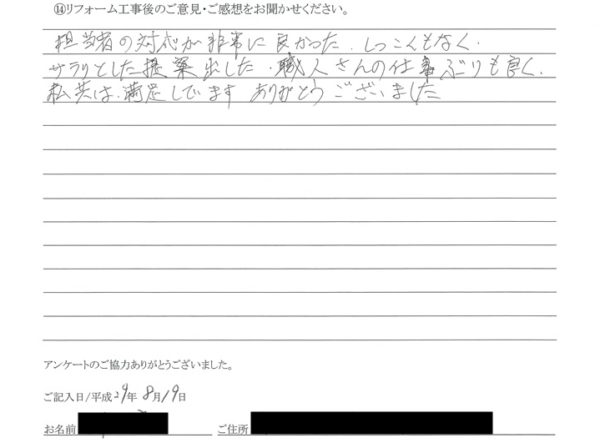 ⑭リフォーム工事後のご意見・ご感想をお聞かせください。
担当者の対応が非常に良かった。しつこくもなく、
サラリとした提案出した。職人さんの仕事ぶりも良く、
私共は、満足しています ありがとうございました
アンケートのご協力ありがとうございました。
ご記入日/平成29年8月19日
お名前 ご住所